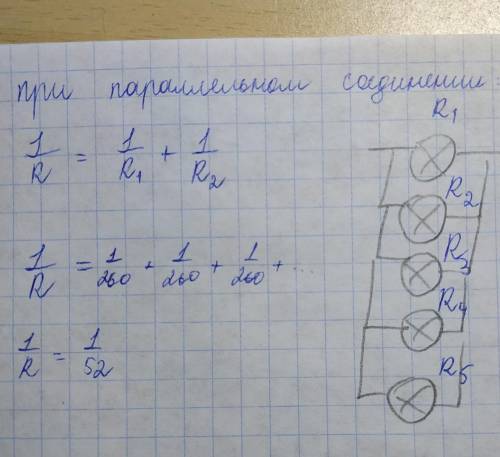 при параллельном соединении
1/R = 1/R₁ + 1/R₂
1/R = 1/260 + 1/260 + 1/260 + ...
1/R = 1/52
R₁
R₂
R₃
R₄
R₅